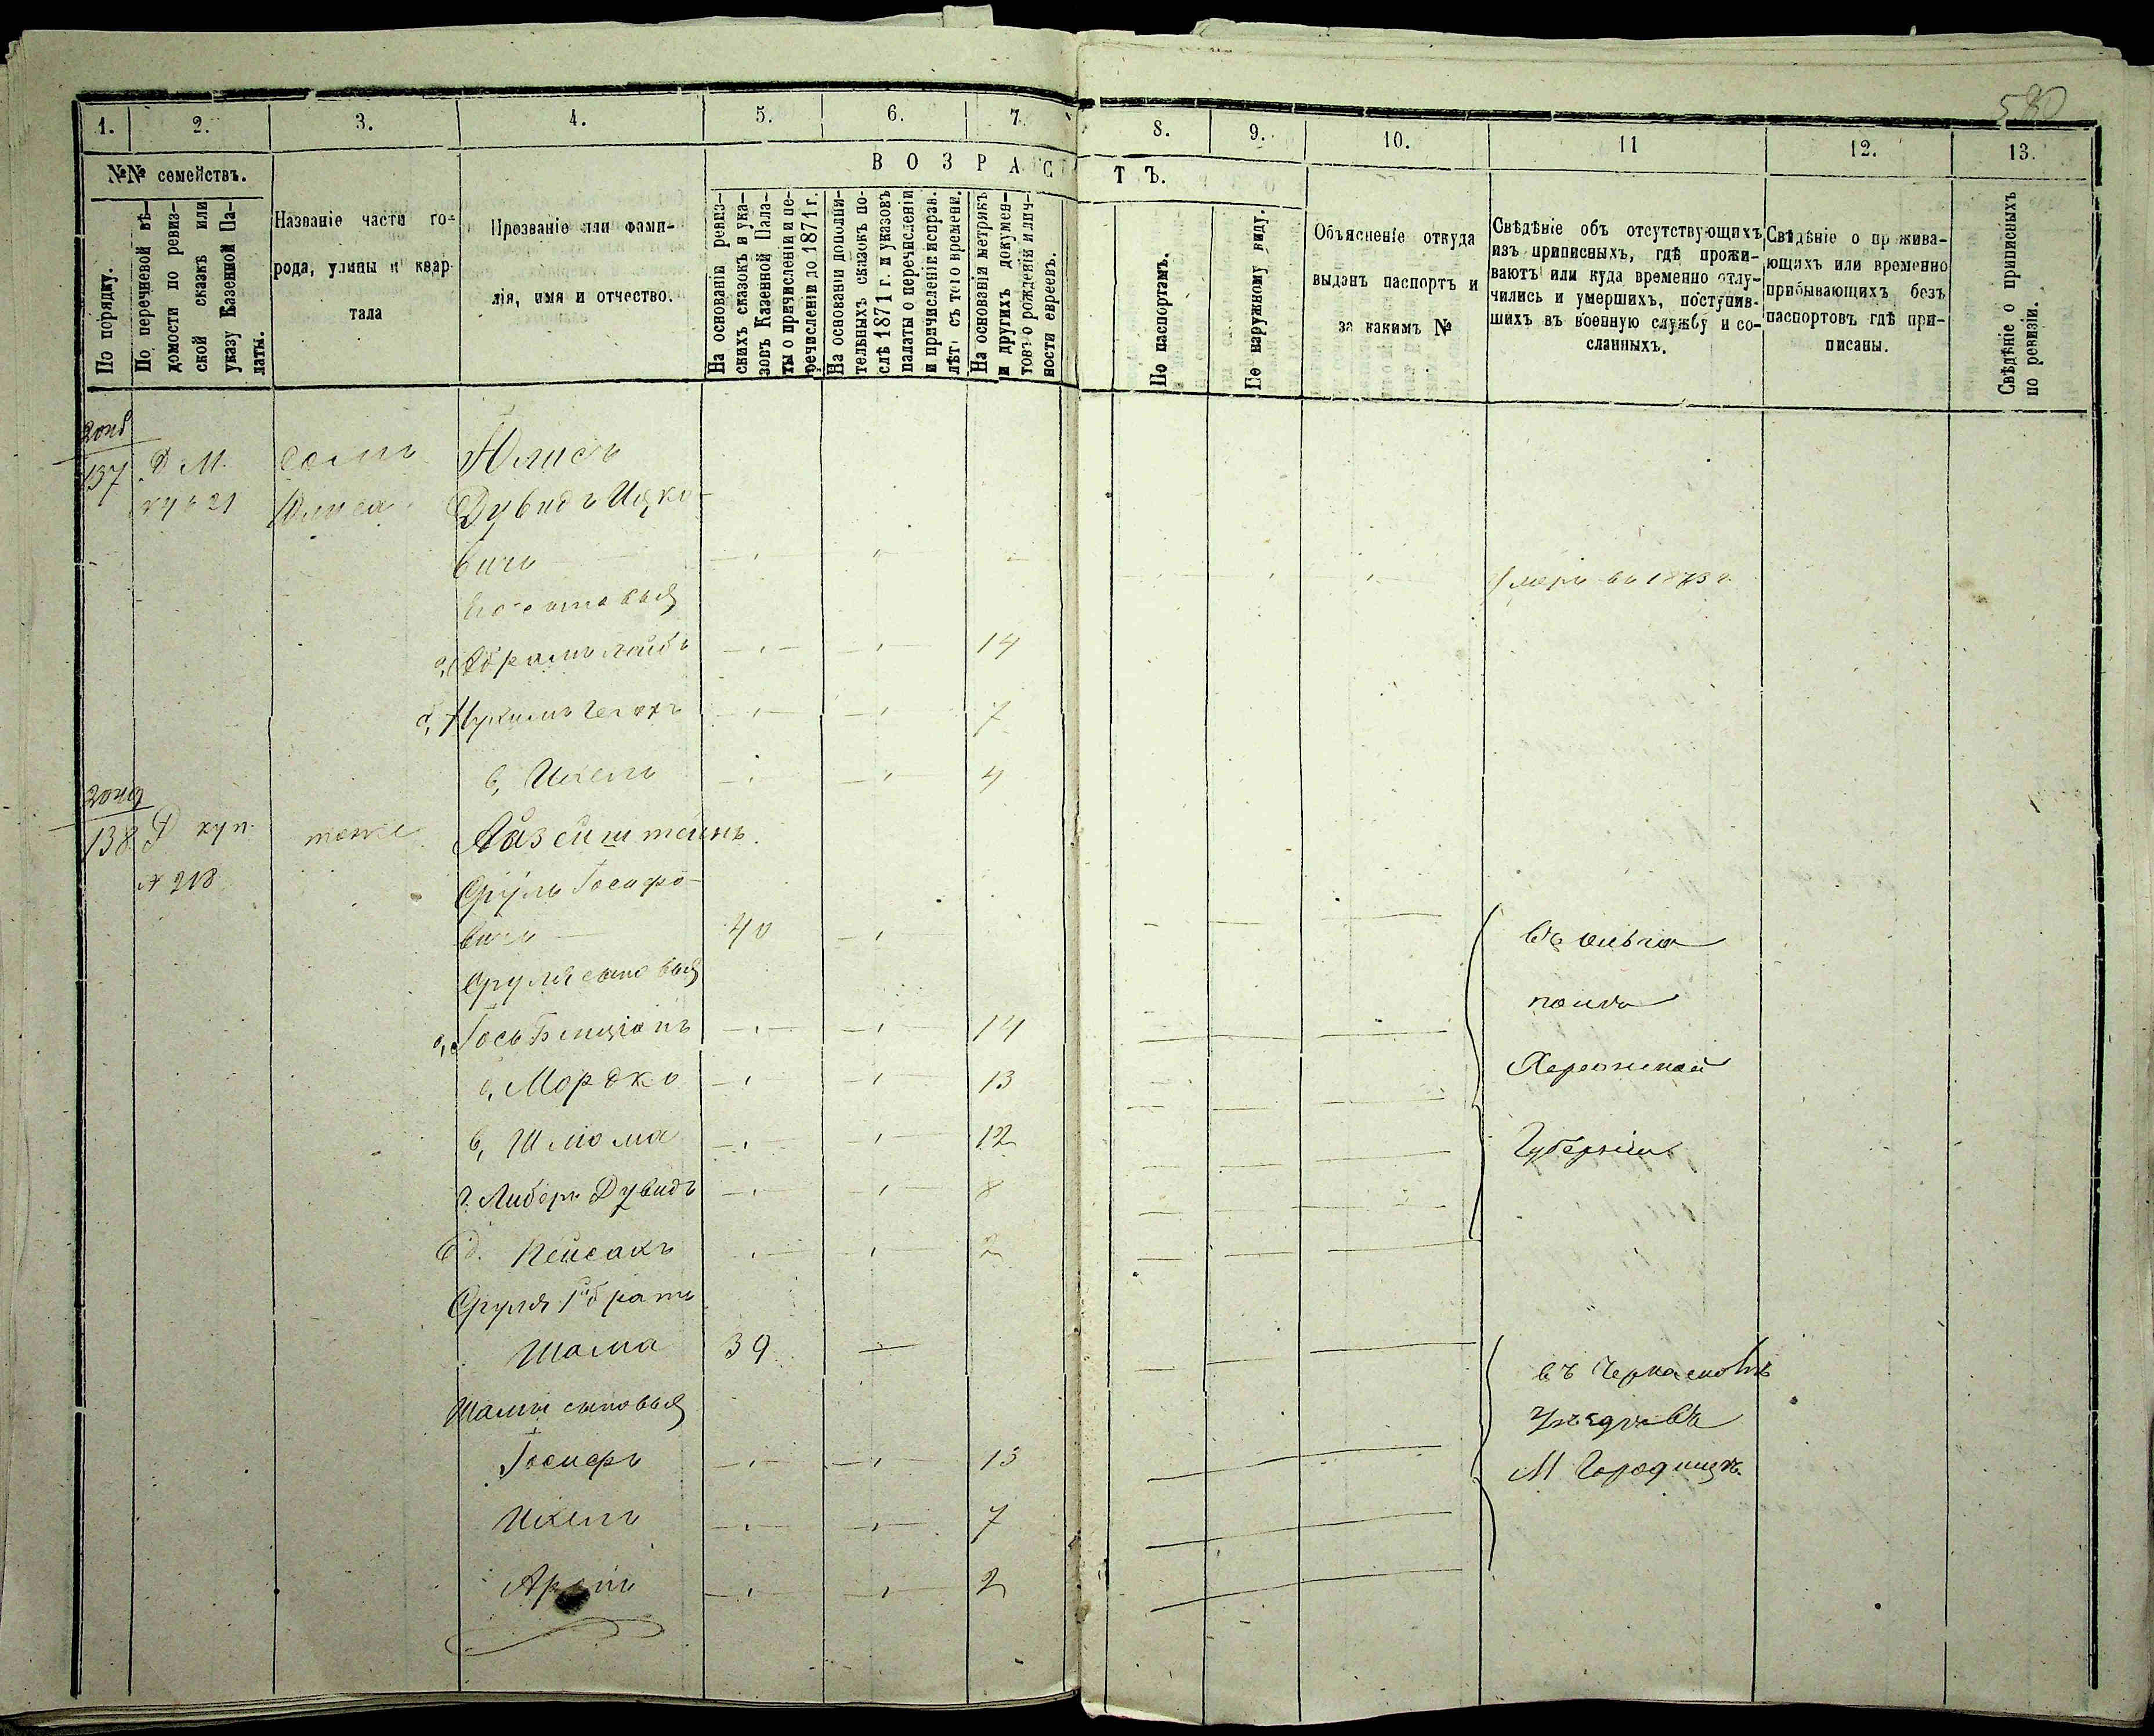 580
1. 2. 3. 4. 5. 6. 7. 8. 9. 10. 11 12. 13.
№№ семействъ.
По порядку.
По перечневой вѣ-
домости по ревиз-
ской сказкѣ или
указу Казенной Па-
латы.
Названіе части го-
рода, улицы и квар-
тала
Прозваніе или фами-
лія, имя и отчество.
ВОЗРАСТЪ.
На основаніи ревиз-
скихъ сказокъ и ука-
зовъ Казенной Пала-
ты о причисленіи и пе-
речисленіи до 1871 г.
На основаніи дополни-
тельныхъ сказокъ по-
слѣ 1871 г. и указовъ
палаты о перечисленіи
и причисленіи исправ.
лѣтъ съ того времени.
На основаніи метрикъ
и другихъ докумен-
товъ о рожденіи и лич-
ности евреевъ.
По паспортамъ.
По наружному виду.
Объясненіе откуда
выданъ паспортъ и
за какимъ №
Свѣдѣніе объ отсутствующихъ
изъ приписныхъ, гдѣ прожи-
ваютъ или куда временно отлу-
чились и умершихъ, поступив-
шихъ въ военную службу и со-
сланныхъ.
Свѣдѣніе о прожива-
ющихъ или временно
прибывающихъ безъ
паспортовъ гдѣ при-
писаны.
Свѣдѣніе о приписныхъ
по ревизіи.
137 Д М. домъ Юлисъ
21 Юлиса Дувидъ Ицко-
вичъ умеръ въ 1873 г.
Его сыновья
а, Абрамъ Лейбъ 14
б, 7
в, Икелъ 4
138 Д куп. тоже Айзенштейнъ
№ 218 Сруль Іосифо-
вичъ 40
Сруля сыновья
а, Іось Бенціонъ 14
б, Мордко 13 Херсонской
в, Шлома 12 Губерніи
г. Либеръ Дувидъ 8
д. Пейсахъ 2
Сруля 1й братъ
Шама 39 въ Черкасковъ
Шамы сыновья Уѣздѣ въ
Іосифъ 13 М Городищѣ
Икелъ 7
Аронъ 2